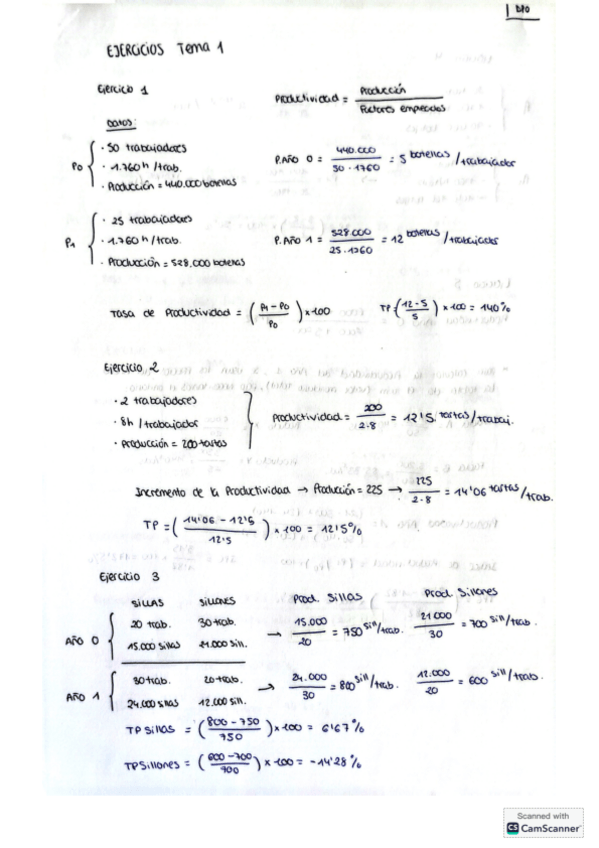 1 DPO
EJERCICIOS Tema 1
Ejercicio 1
Productividad = Producción / Factores empleados
DATOS:
P0 { · 50 trabajadores
· 1.760 h / trab.
· Producción = 440.000 botellas
P.Año 0 = 440.000 / 50 · 1760 = 5 botellas / trabajador
P1 { · 25 trabajadores
· 1.760 h / trab.
· Producción = 528.000 botellas
P.Año 1 = 528.000 / 25 · 1760 = 12 botellas / trabajador
Tasa de Productividad = ( P1 - P0 / P0 ) x 100 TP = ( 12 - 5 / 5 ) x 100 = 140%
Ejercicio 2
· 2 trabajadores
· 8h / trabajador
· Producción = 200 tartas
Productividad = 200 / 2·8 = 12'5 tartas / trabaj.
Incremento de la Productividad → Producción = 225 → 225 / 2·8 = 14'06 tartas / trab.
TP = ( 14'06 - 12'5 / 12'5 ) x 100 = 12'5%
Ejercicio 3
SILLAS SILLONES Prod. Sillas Prod. Sillones
AÑO 0 { 20 trab. 30 trab.
15.000 sillas 21.000 sill.
→ 15.000 / 20 = 750 sill / trab. 21.000 / 30 = 700 sill / trab.
AÑO 1 { 30 trab. 20 trab.
24.000 sillas 12.000 sill.
→ 24.000 / 30 = 800 sill / trab. 12.000 / 20 = 600 sill / trab.
TP Sillas = ( 800 - 750 / 750 ) x 100 = 6'67%
TP Sillones = ( 600 - 700 / 700 ) x 100 = -14'28%
Scanned with
CS CamScanner